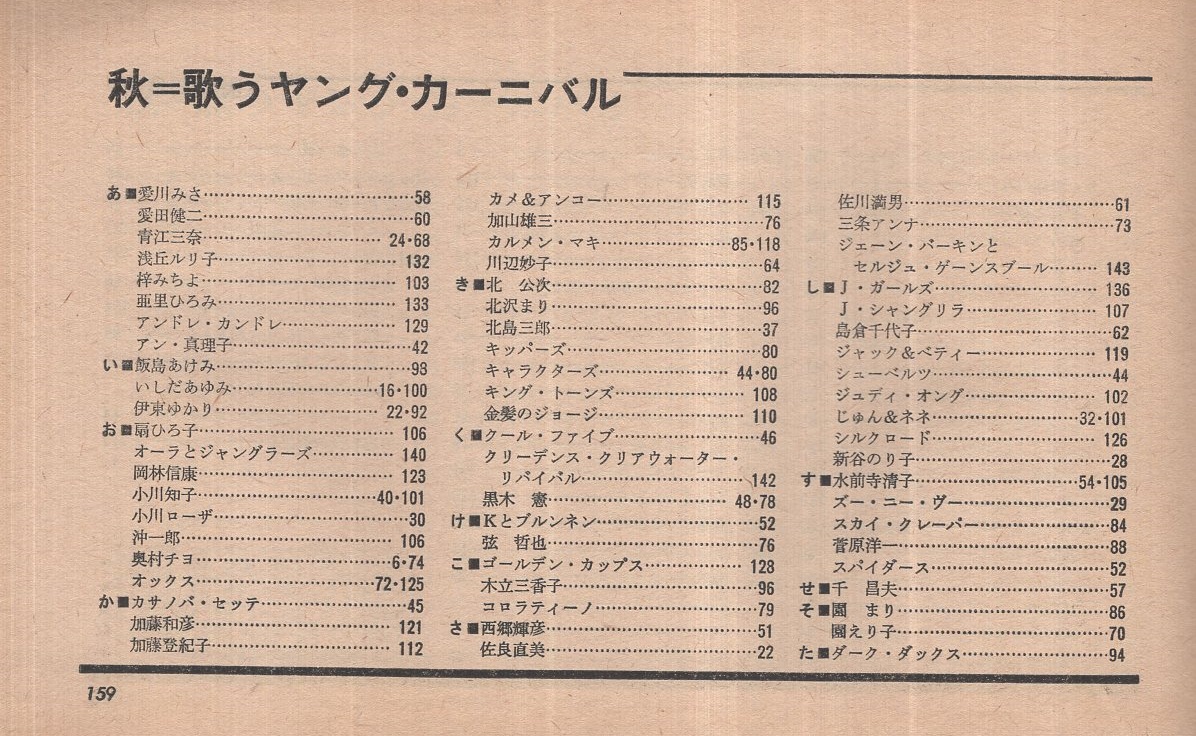 秋=歌うヤング・カーニバル
あ■愛川みさ…………58
愛田健二…………60
青江三奈…………24・68
浅丘ルリ子…………132
梓みちよ…………103
亜里ひろみ…………133
アンドレ・カンドレ…………129
アン・真理子…………42
い■飯島あけみ…………93
いしだあゆみ…………16・100
伊東ゆかり…………22・92
お■扇ひろ子…………106
オーラとジャングラーズ…………140
岡林信康…………123
小川知子…………40・101
小川ローザ…………30
沖一郎…………106
奥村チヨ…………6・74
オックス…………72・125
か■カサノバ・セッテ…………45
加藤和彦…………121
加藤登紀子…………112
カメ&アンコー…………115
加山雄三…………76
カルメン・マキ…………85・118
川辺妙子…………64
き■北　公次…………82
北沢まり…………96
北島三郎…………37
キッパーズ…………80
キャラクターズ…………44・80
キング・トーンズ…………108
金髪のジョージ…………110
く■クール・ファイブ…………46
クリーデンス・クリアウォーター・
リバイバル…………142
黒木　憲…………48・78
け■Kとブルンネン…………52
弦　哲也…………76
こ■ゴールデン・カップス…………128
木立三香子…………96
コロラティーノ…………79
さ■西郷輝彦…………51
佐良直美…………22
佐川満男…………61
三条アンナ…………73
ジェーン・バーキンと
セルジュ・ゲーンスブール…………143
し■J・ガールズ…………136
J・シャングリラ…………107
島倉千代子…………62
ジャック&ベティー…………119
シューベルツ…………44
ジュディ・オング…………102
じゅん&ネネ…………32・101
シルクロード…………126
新谷のり子…………28
す■水前寺清子…………54・105
ズー・ニー・ヴー…………29
スカイ・クレーパー…………84
菅原洋一…………88
スパイダース…………52
せ■千　昌夫…………57
そ■園　まり…………86
園えり子…………70
た■ダーク・ダックス…………94
159